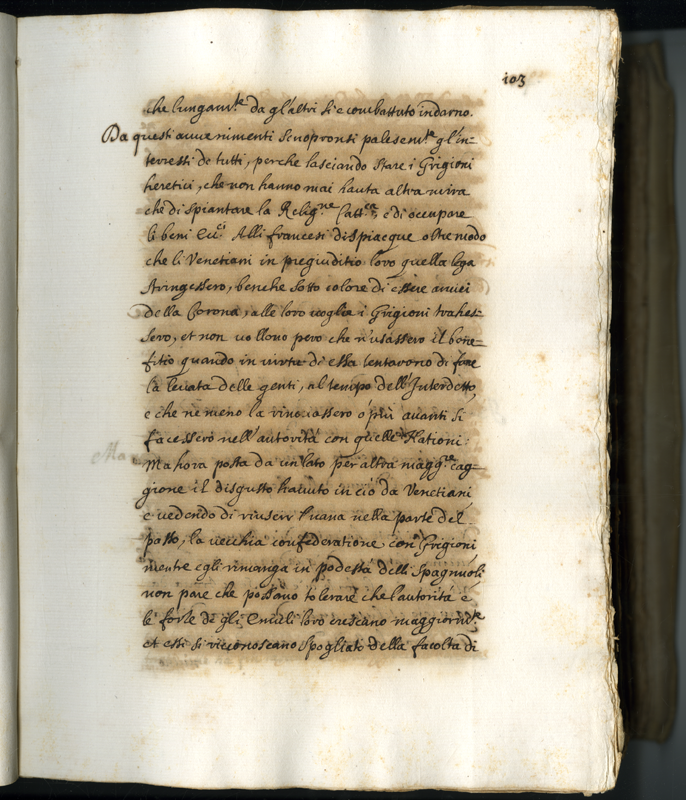 103
che lungam.te da gl'altri si è combattuto indarno.
Da questi auuenimenti scuopronsi palesem.te gl'in-
terressi de tutti, perche lasciando stare i Grigioni
heretici, che non hanno mai hauta altra mira
che di spiantare la Relig.ne Catt.ca, e di occupare
li beni Ecc.ci Alli francesi dispiacque oltremodo
che li Venetiani in pregiuditio loro quella lega
stringessero, benche sotto colore di essere amici
della Corona, alle loro uoglie i Grigioni trahes-
sero, et non uollono pero che n'usassero il bene-
fitio quando in uirtu di essa tentarono di fare
la leuata delle genti, al tempo dell'Interdetto,
e che ne meno la rinouassero ò più auanti si
facessero nell'autorità con quelle Nationi:
Ma hora posta da un lato per altra magg.re cag-
gione il disgusto hauuto in ciò da Venetiani
e uedendo di riuscir uana nella parte del
passo, la uecchia confederatione con Grigioni,
mentre egli rimanga in podestà delli Spagnuoli
non pare che possano tolerare che l'autorità e
le forze de gli Emuli loro crescano maggiorm.te
et essi si riconoscano spogliati della facoltà di